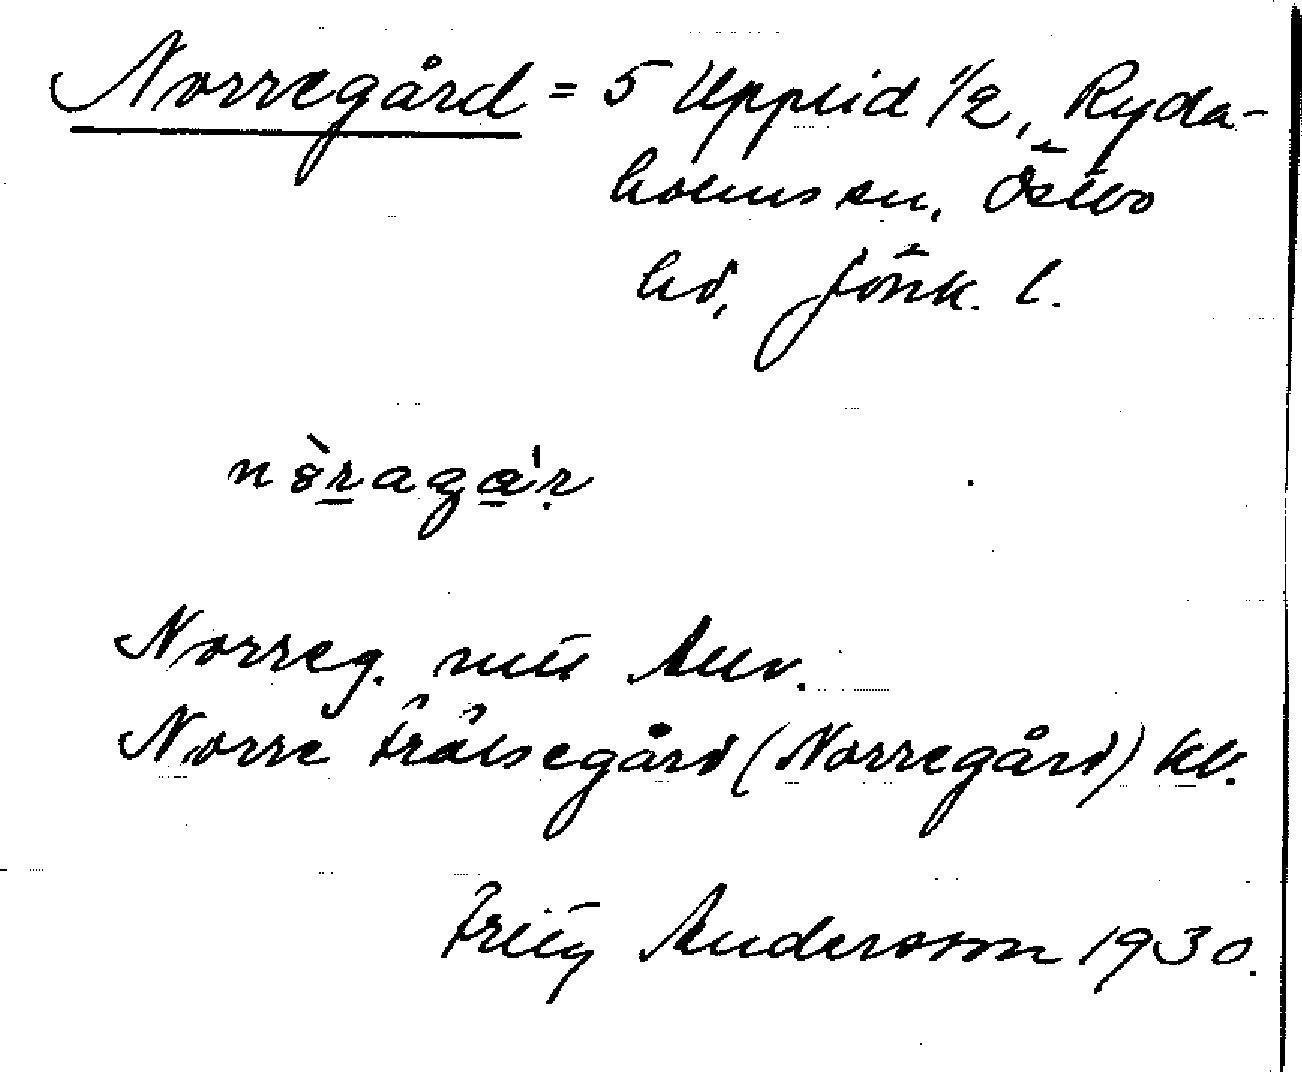 Norregård = 5 Upplid 1/2, Ryda-
holms sn, Östbo
hd, Jönk. l.
Norreg. mtl
Norre Frälsegård (Norregård)
Fritz Andersson 1930.